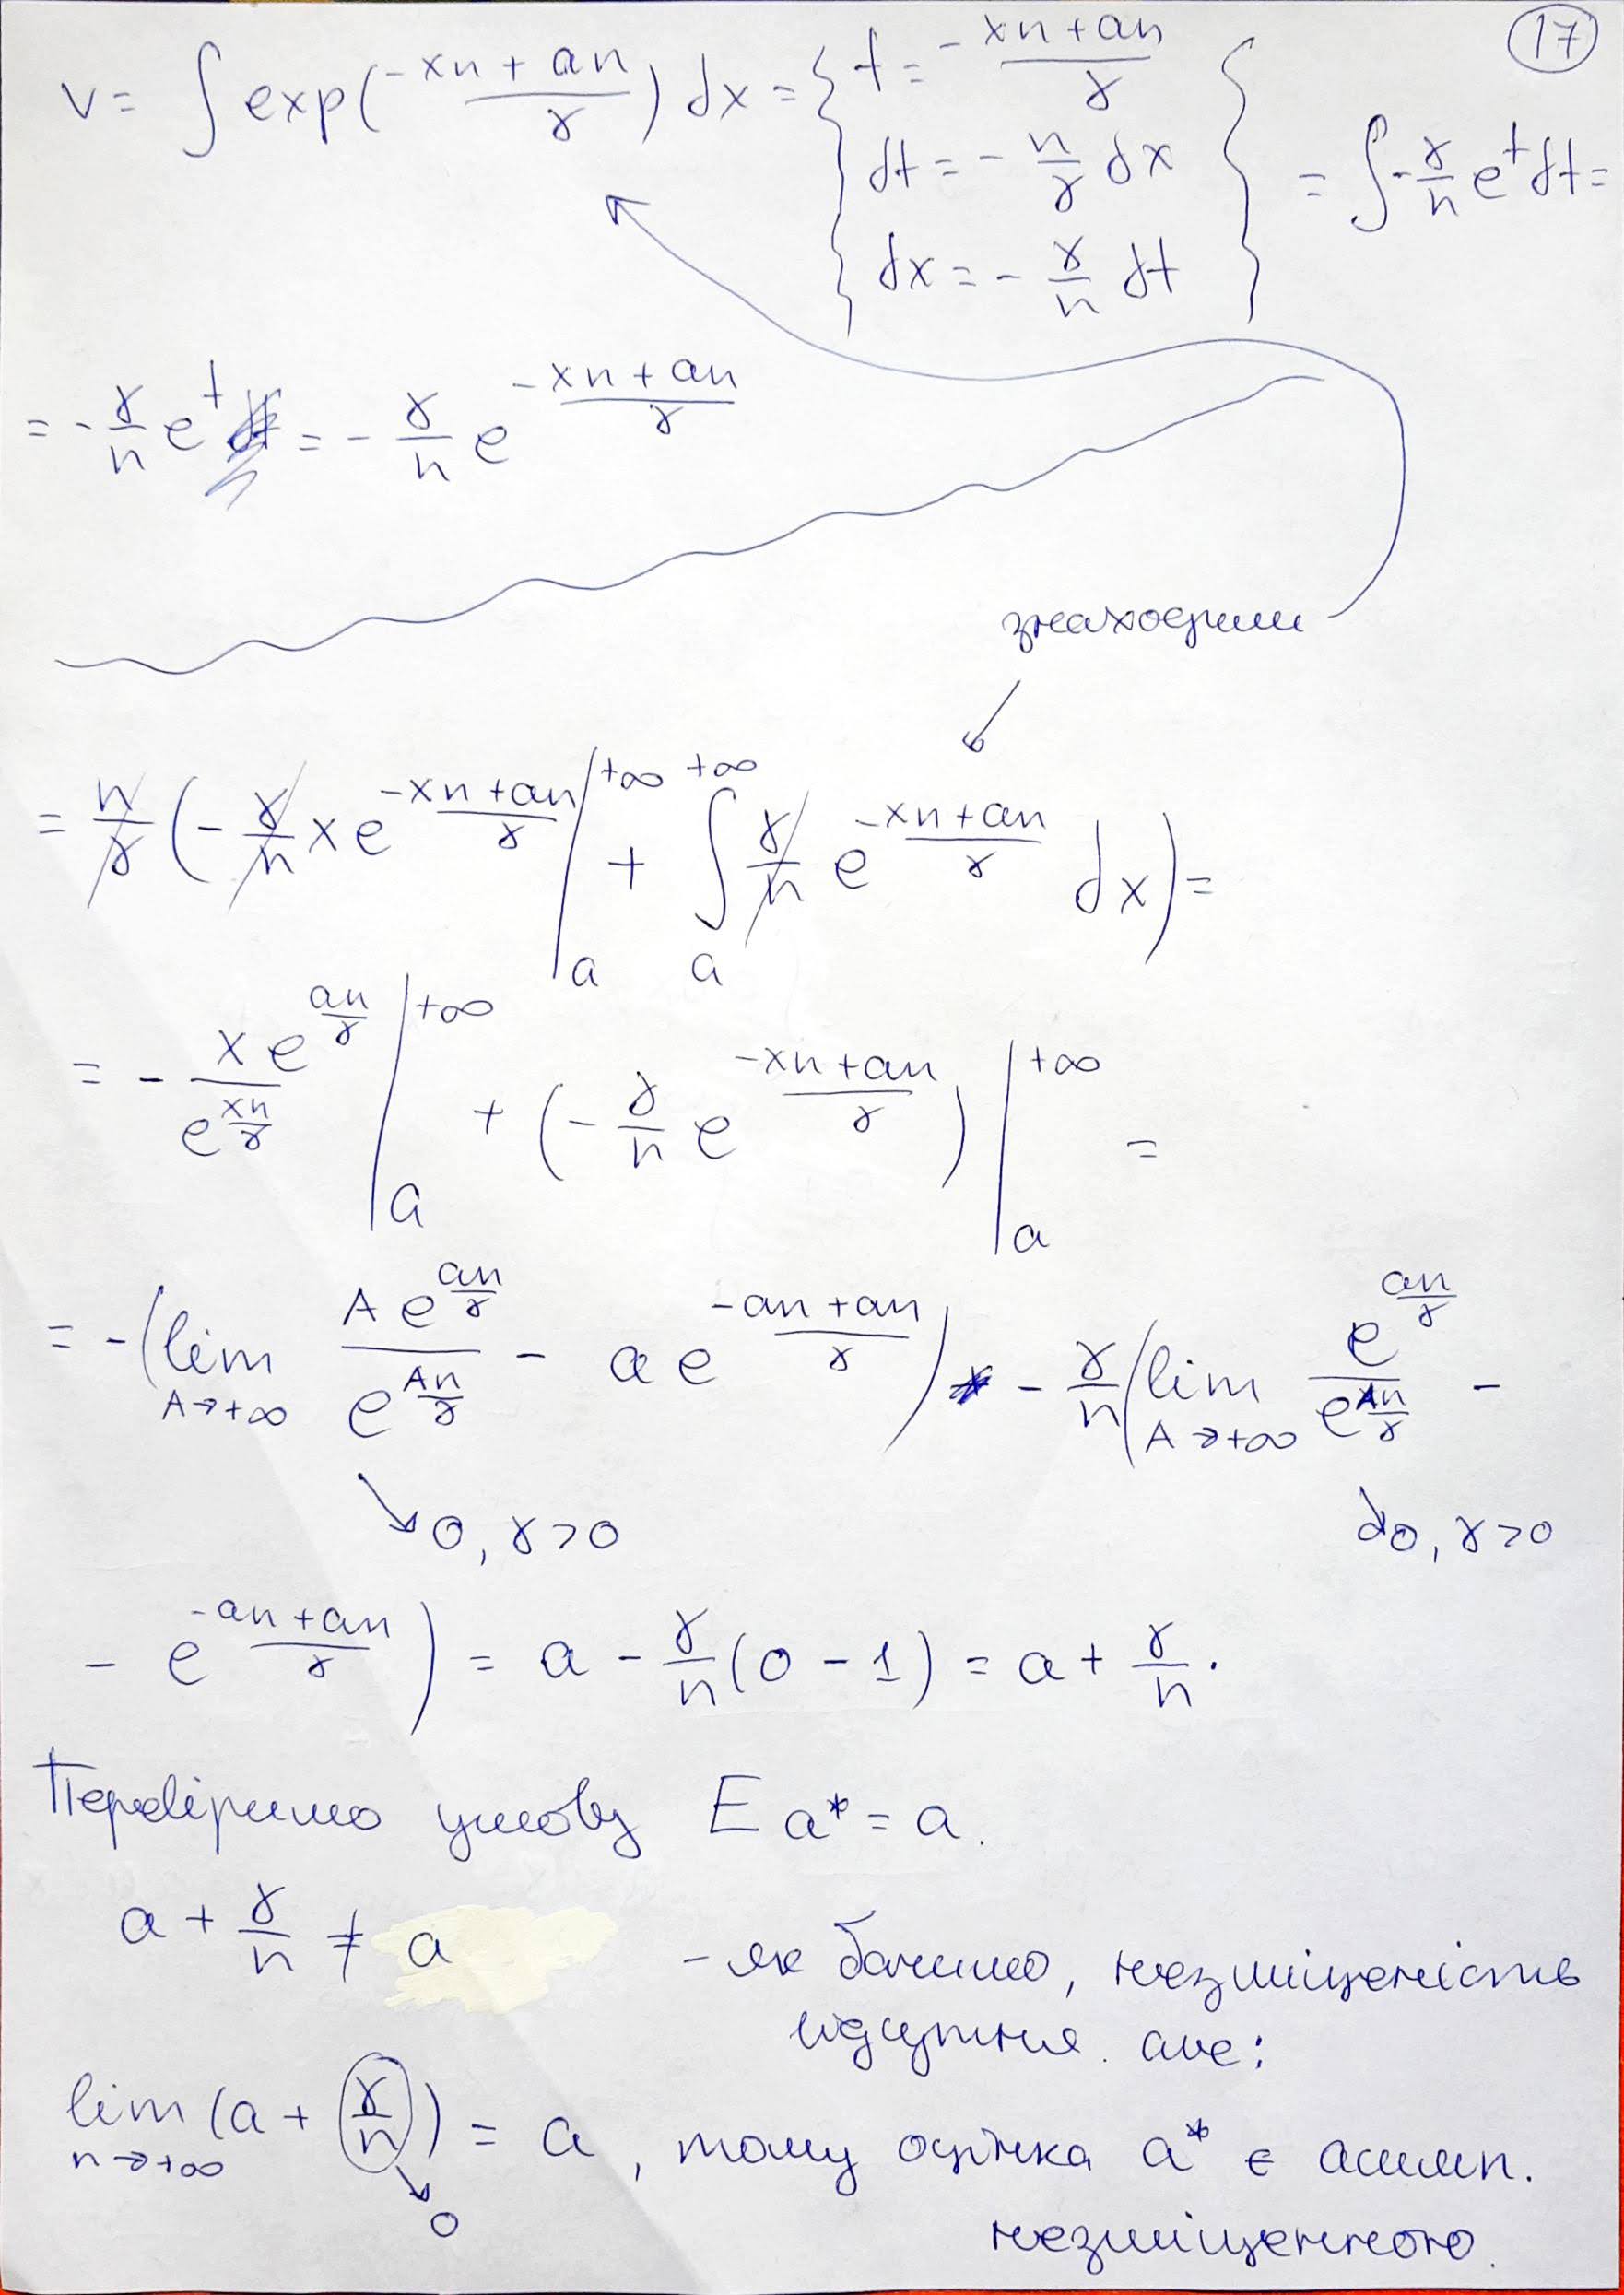 17
v = ∫ exp(-xn + an / γ) dx = { t = -xn + an / γ
dt = - n/γ dx
dx = - γ/n dt } = ∫ - γ/n e^t dt =
= - γ/n e^t = - γ/n e^(-xn + an / γ)
знаходили
= n/γ ( - γ/n x e^(-xn + an / γ) |_a^+∞ + ∫_a^+∞ γ/n e^(-xn + an / γ) dx ) =
= - x e^(an/γ) / e^(xn/γ) |_a^+∞ + ( - γ/n e^(-xn + an / γ) ) |_a^+∞ =
= - ( lim A→+∞ A e^(an/γ) / e^(An/γ) - a e^(-an + an / γ) ) - γ/n ( lim A→+∞ e^(an/γ) / e^(An/γ) -
↘ 0, γ > 0 ↘ 0, γ > 0
- e^(-an + an / γ) ) = a - γ/n (0 - 1) = a + γ/n .
Перевіримо умову E a* = a.
a + γ/n ≠ a - як бачимо, незміщеність
відсутня. але:
lim n→+∞ (a + γ/n) = a , тому оцінка a* є асимп.
↘ 0
незміщенною.